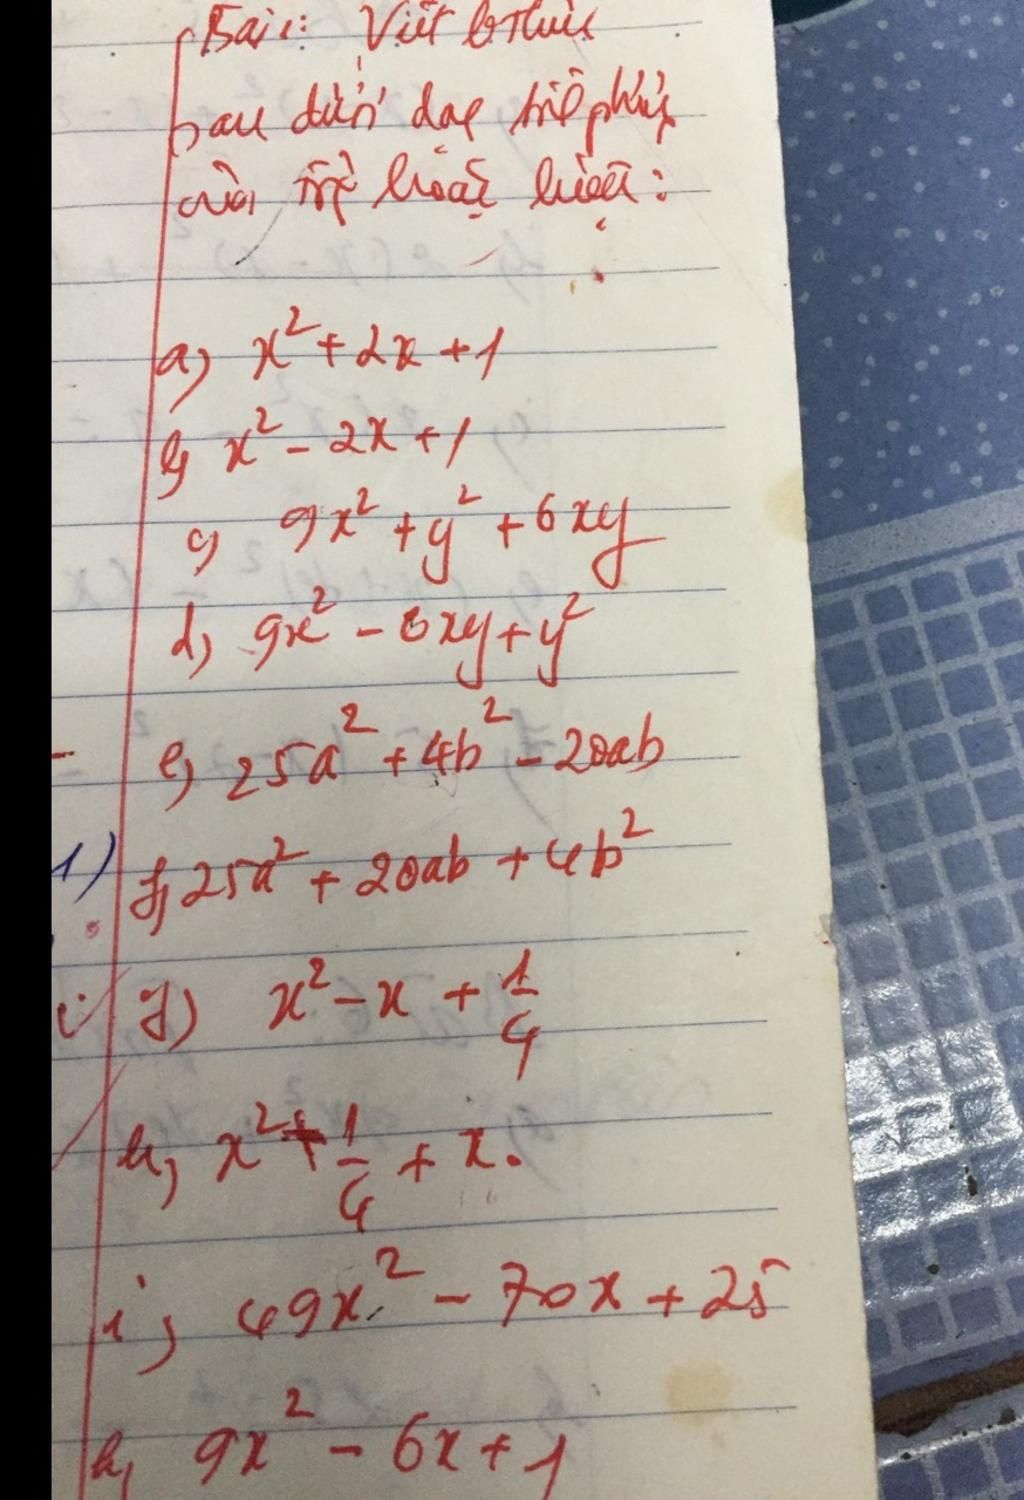 Bài: Viết b thức
sau dưới dạng bình phương
của tổng hoặc hiệu:
a, x² + 2x + 1
b, x² - 2x + 1
c, 9x² + y² + 6xy
d, 9x² - 6xy + y²
e, 25a² + 4b² - 20ab
1)
f, 25a² + 20ab + 4b²
g) x² - x + 1/4
h, x² + 1/4 + x.
i, 49x² - 70x + 25
k, 9x² - 6x + 1